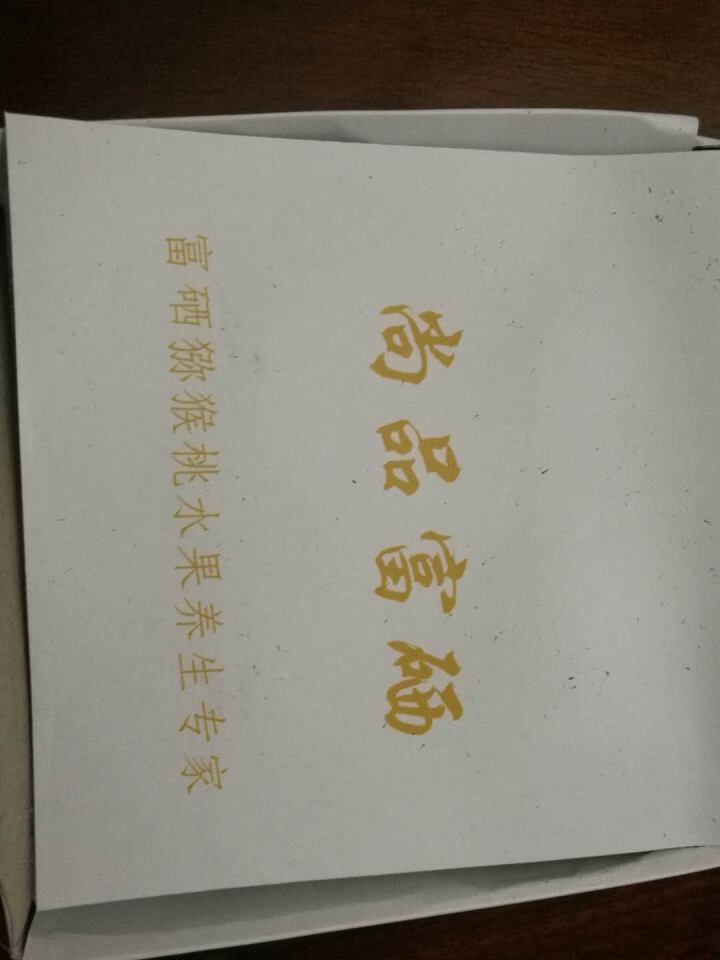 尚品富硒
富硒猕猴桃水果养生专家